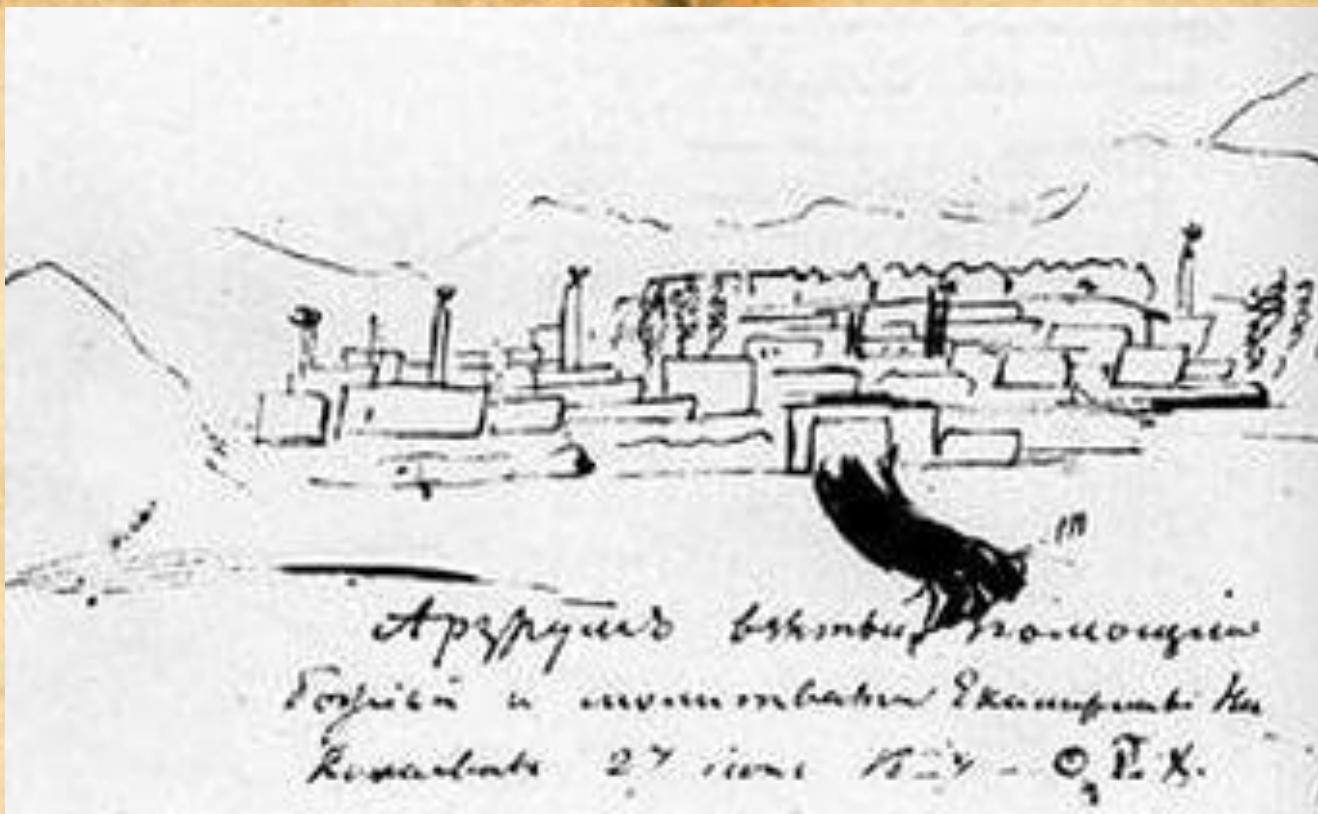 Арзрумъ взятый помощію
Божіей и молитвами Екатерины Ни
колаевны 27 іюня Р. Х.